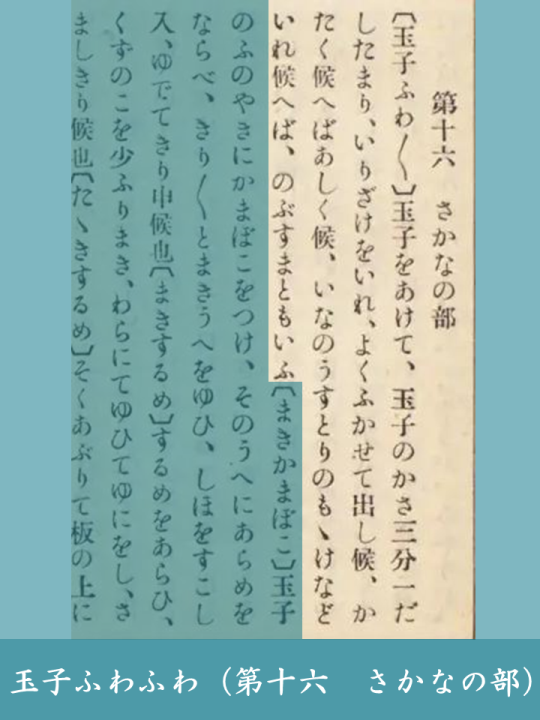 第十六　さかなの部
〔玉子ふわ〱〕玉子をあけて、玉子のかさ三分一だ
したまり、いりざけをいれ、よくふかせて出し候、か
たく候へばあしく候、いなのうすとりのもゝけなど
いれ候へば、のぶすまともいふ〔まきかまぼこ〕玉子
のふのやきにかまぼこをつけ、そのうへにあらめを
ならべ、きり〱とまきうへをゆひ、しほをすこし
入、ゆでてきり申候也〔まきするめ〕するめをあらひ、
くずのこを少ふりまき、わらにてゆひてゆにをし、さ
ましきり候也〔たゝきするめ〕そくあぶりて板の上に
玉子ふわふわ（第十六　さかなの部）